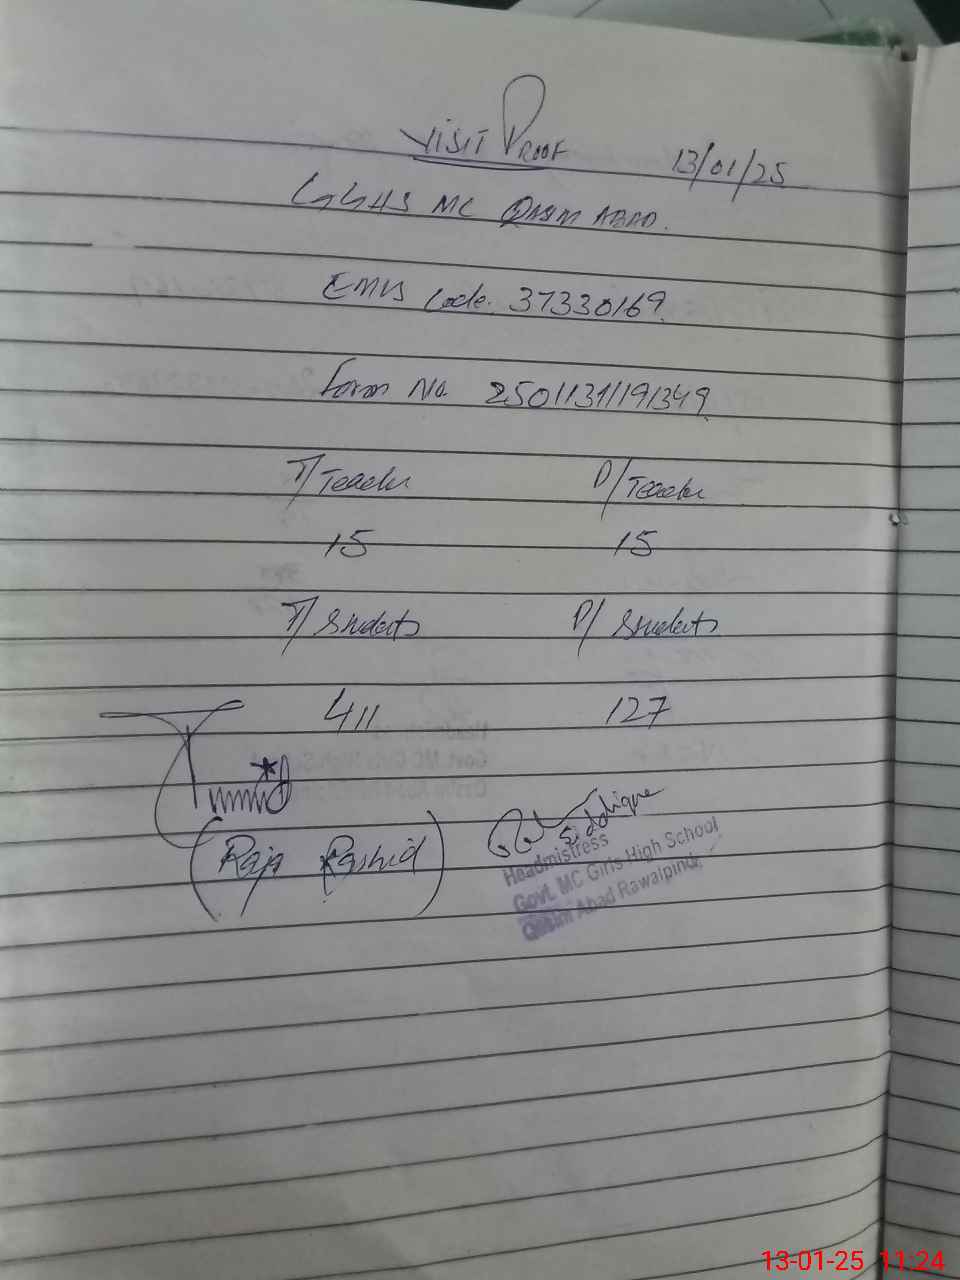 VISIT PROOF 13/01/25
GGHS MC QASIM ABAD.
EMIS Code. 37330169.
Form No. 2501131191349.
T/Teacher P/Teacher
15 15
T/Students P/Students
411 127
(Raja Rashid)
Siddique
Headmistress
Govt. MC Girls High School
Qasim Abad Rawalpindi
13-01-25 11:24